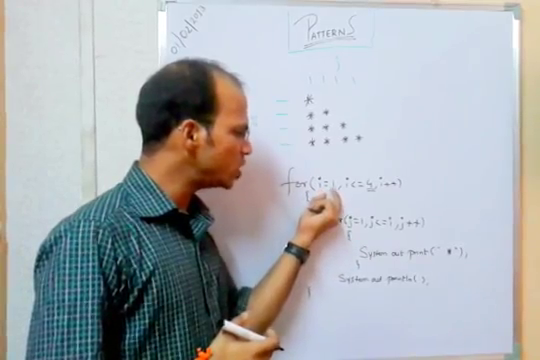 01/02/2017
PATTERNS
*
* *
* * *
* * * *
for(i=1, i<=4, i++)
{
(j=1, j<=i, j++)
{
System out print(" *"),
}
System out println( ),
}